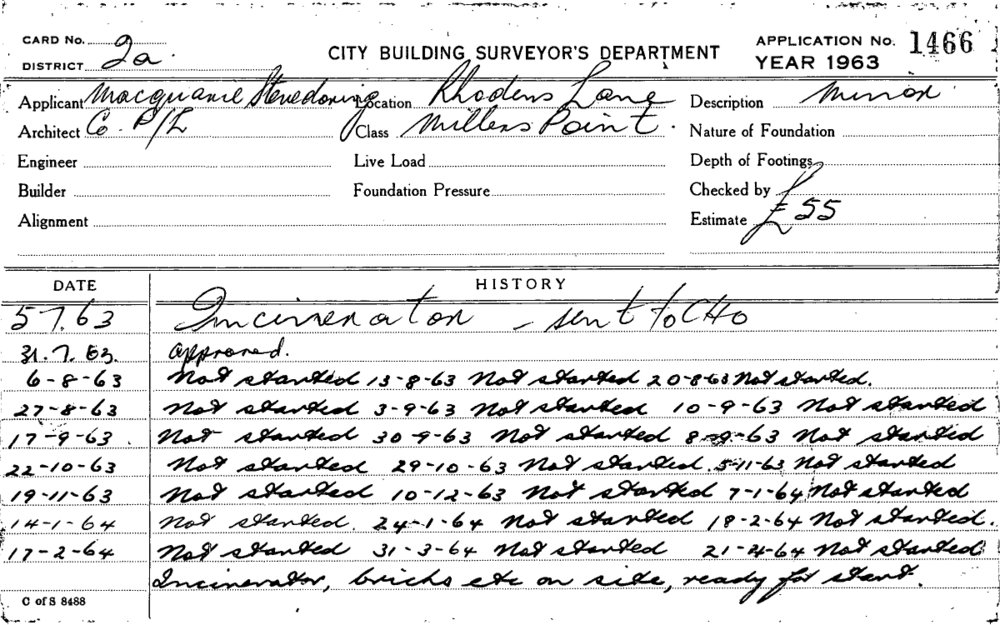 CARD No. 2a. CITY BUILDING SURVEYOR'S DEPARTMENT APPLICATION No. 1466
DISTRICT YEAR 1963
Applicant Macquarie Stevedoring Location Rhodens Lane Description Minor
Architect Co. P/L Class Millers Point. Nature of Foundation
Engineer Live Load Depth of Footings
Builder Foundation Pressure Checked by
Alignment Estimate £55
DATE HISTORY
5 7.63 Incinerator - sent to CHO
31.7.63. approved.
6-8-63 Not started 13-8-63 Not started 20-8-63 Not started.
27-8-63 Not started 3-9-63 Not started 10-9-63 Not started
17-9-63. Not started 30-9-63 Not started 8-9-63 Not started
22-10-63 Not started 29-10-63 Not started 5-11-63 Not started
19-11-63 Not started 10-12-63 Not started 7-1-64 Not started
14-1-64 Not started. 24-1-64 Not started 18-2-64 Not started.
17-2-64 Not started 31-3-64 Not started 21-4-64 Not started
Incinerator, bricks etc on site, ready for start.
C of S 8488